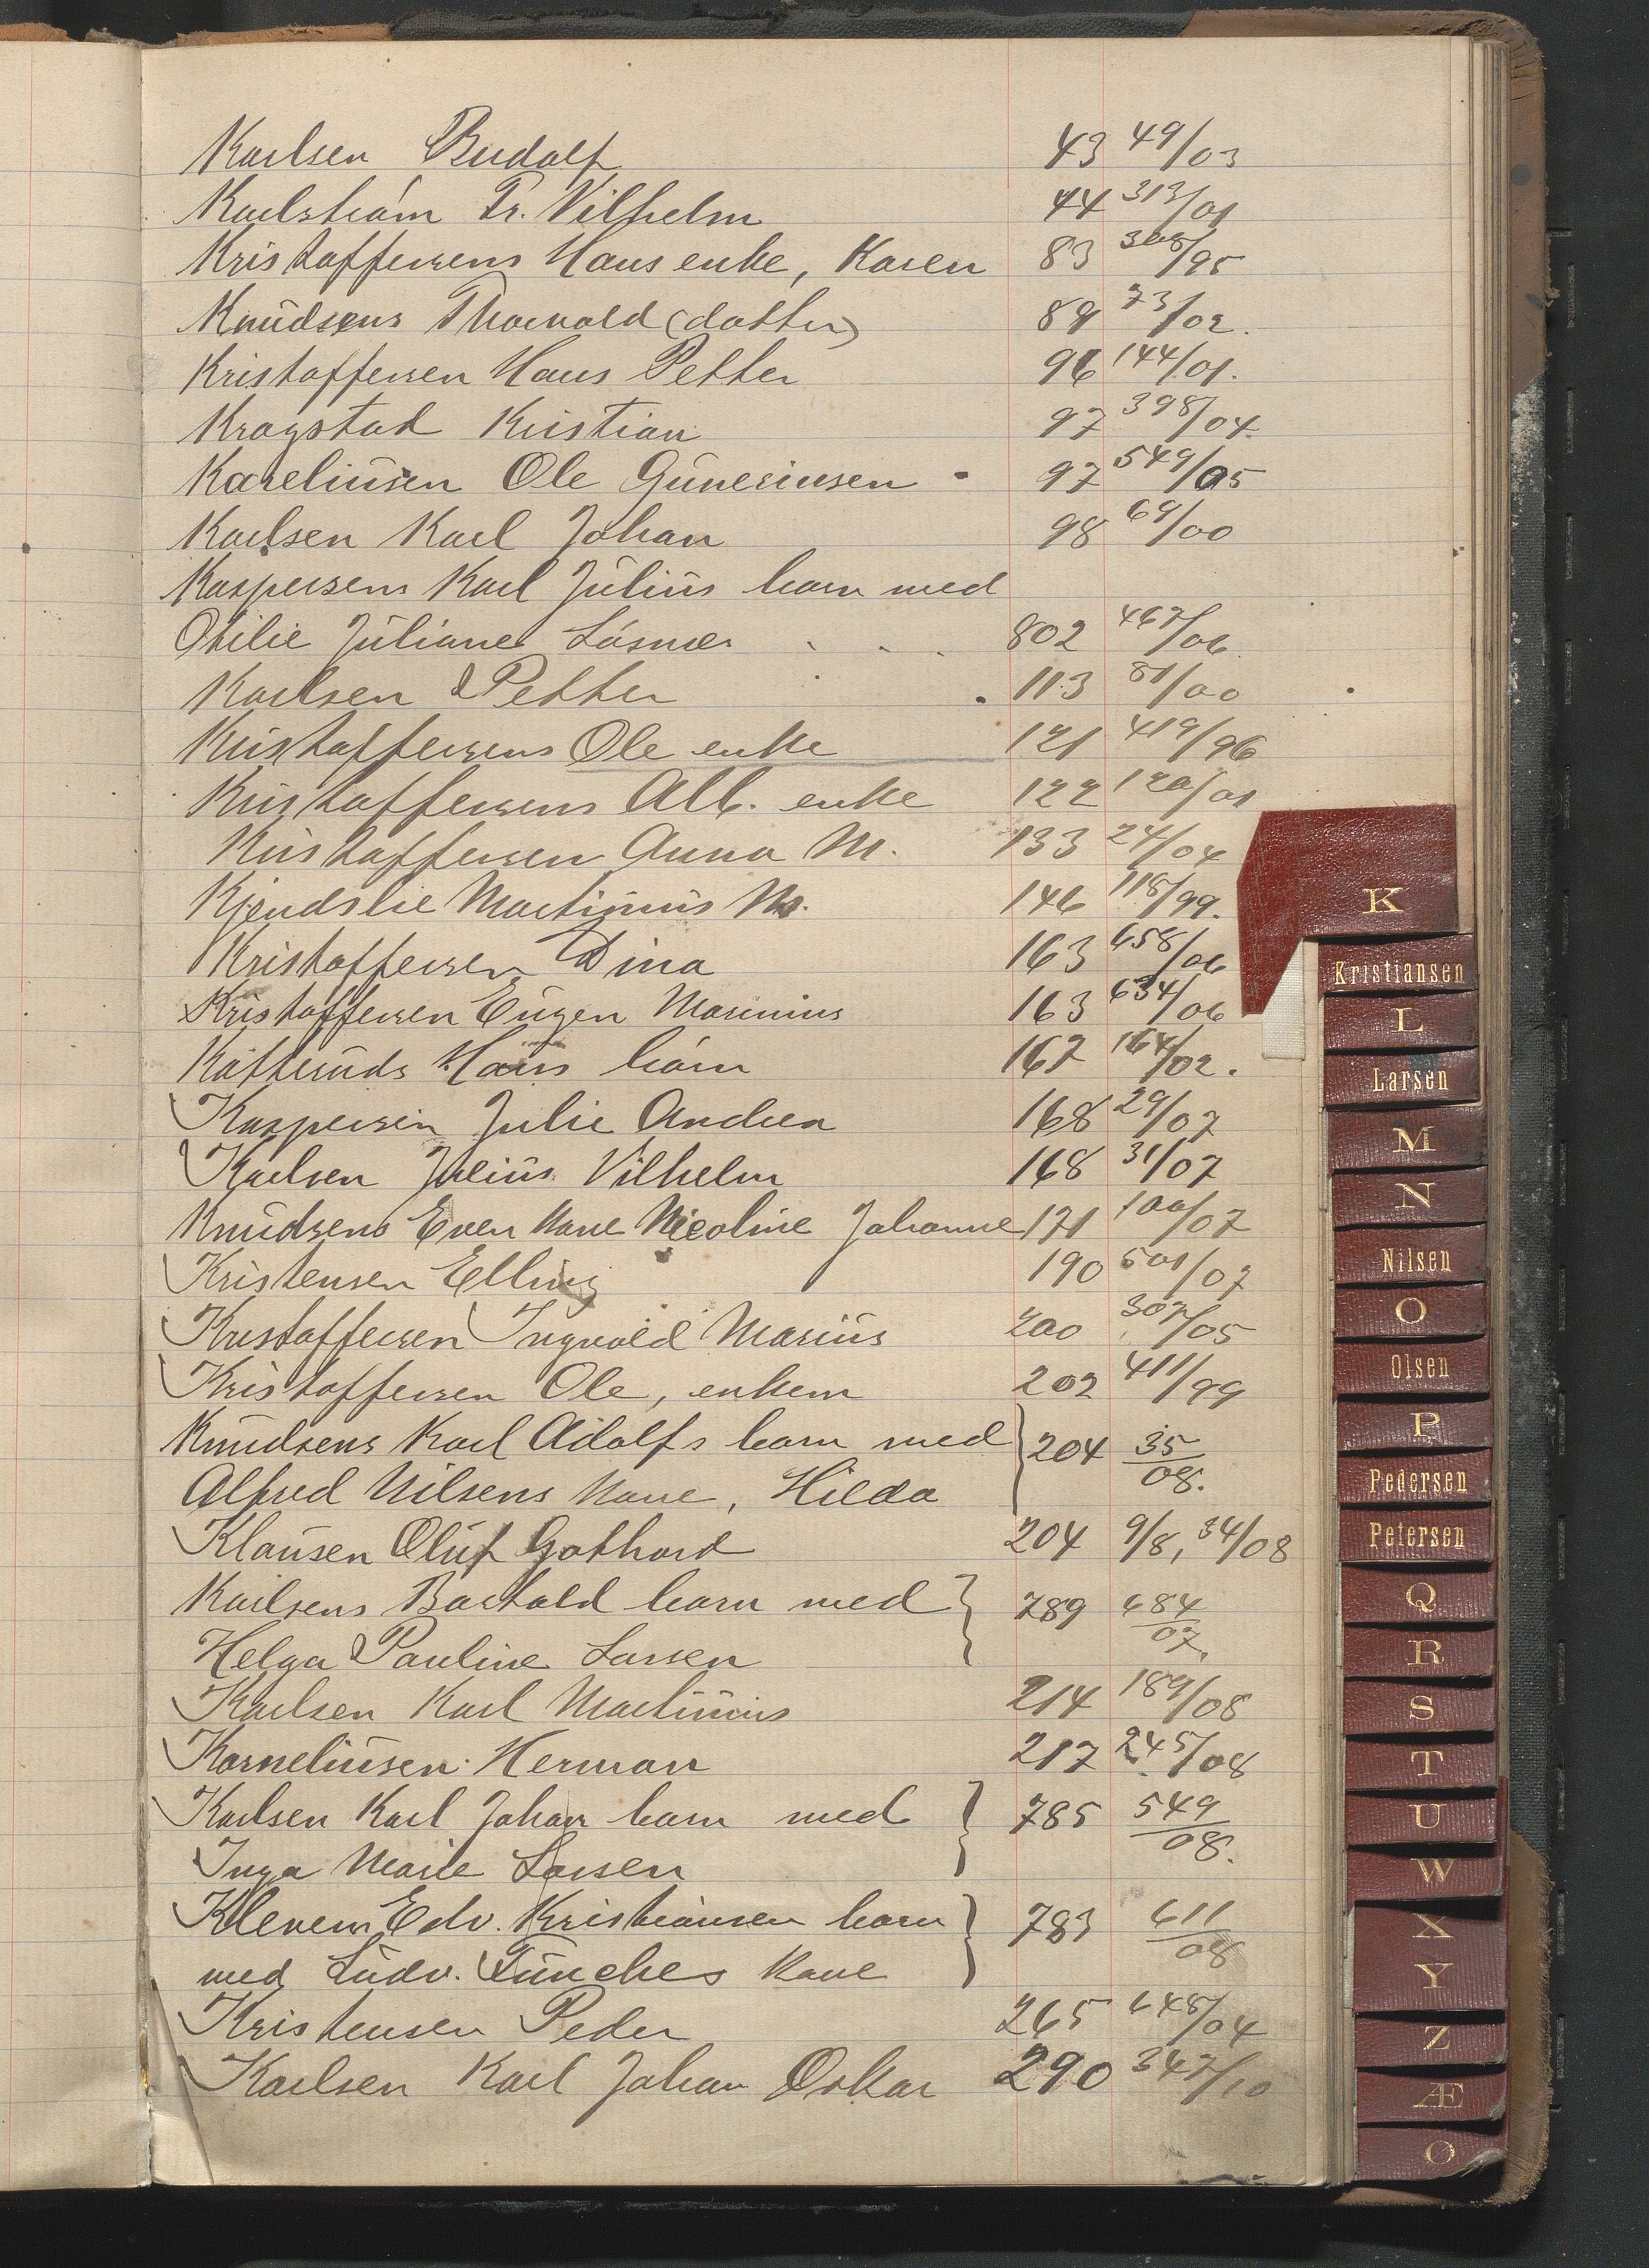 Karlsen Rudolf 43 49/03
Karlström Fr. Vilhelm 44 313/01
Kristoffersens Hans enke, Karen 83 308/95
Knudsens Thorvald (datter) 89 73/02.
Kristoffersen Hans Petter 96 144/01.
Kragstad Kristian 97 398/04.
Kareliusen Ole Guneriusen 97 549/05
Karlsen Karl Johan 98 69/00
Kaspersens Karl Julius barn med
Otilie Juliane Låsmer 802 467/06
Karlsen Petter 113 81/00
Kristoffersens Ole enke 121 419/96
Kristoffersens Alb. enke 122 120/01
Kristoffersen Anna M. 133 24/04
Kjendslie Martinius M. 146 118/99.
Kristoffersen Dina 163 658/06
Kristoffersen Eugen Marinius 163 634/06
Kåtteruds Hans barn 167 164/02.
Kaspersen Julie Andrea 168 29/07
Karlsen Julius Vilhelm 168 31/07
Knudsens Even kone Nicoline Johanne 171 100/07
Kristensen Elling 190 501/07
Kristoffersen Ingvald Marius 200 307/05
Kristoffersen Ole, enkem 202 411/99
Knudsens Karl Adolfs barn med 204 35/08.
Alfred Nilsens kone, Hilda
Klausen Oluf Gothard 204 9/8, 34/08
Karlsens Bartold barn med 789 684/07.
Helga Pauline Larsen
Karlsen Karl Martinius 214 189/08
Korneliusen Herman 217 245/08
Karlsen Karl Johan barn med 785 549/08.
Inga Marie Larsen
Klevens Edv. Kristiansen barn 783 611/08
med Ludv. Tünches kone
Kristensen Peder 265 648/04
Karlsen Karl Johan Oskar 290 347/10
K
Kristiansen
L
Larsen
M
N
Nilsen
O
Olsen
P
Pedersen
Petersen
Q
R
S
T
U
W
X
Y
Z
Æ
O